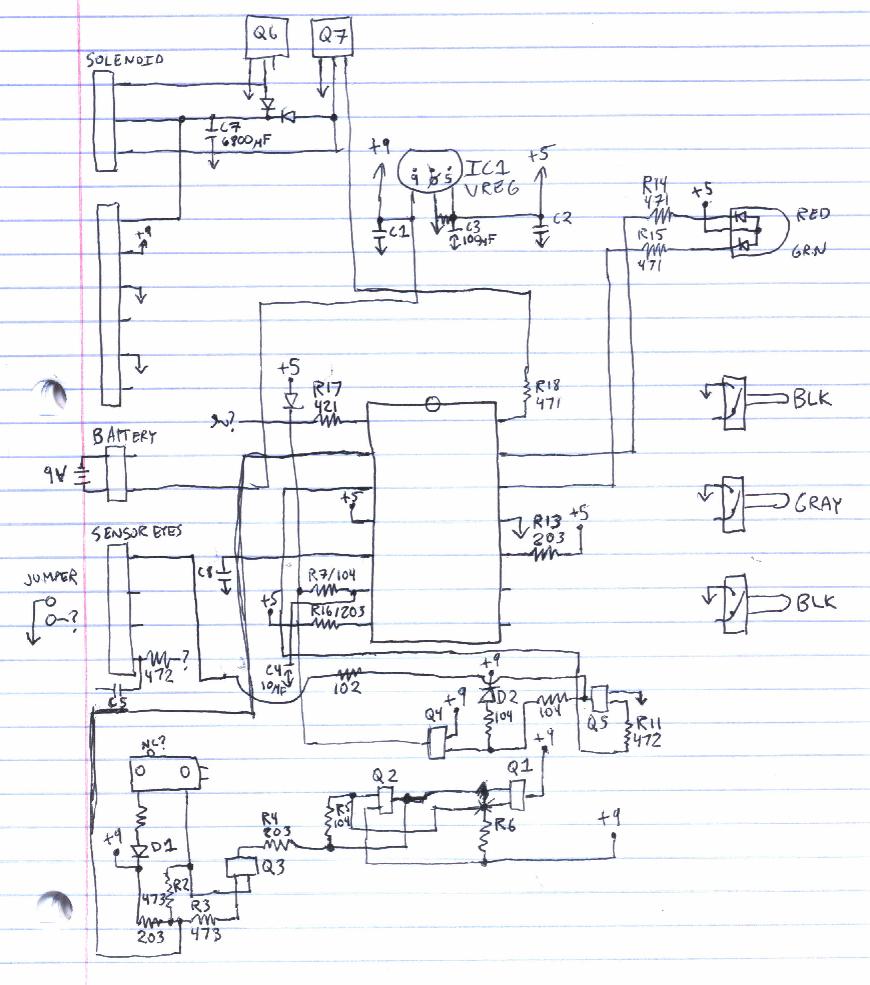 Q6
Q7
SOLENOID
C7
6800µF
+9
IC1
VREG
9
5
+5
C1
C3
100µF
C2
R14
471
+5
R15
471
RED
GRN
+9
+5
R17
421
R18
471
BLK
BATTERY
9V
+5
GRAY
R13
203
+5
SENSOR EYES
JUMPER
?
C8
R7/104
+5
R16/203
BLK
472
?
C5
C4
10µF
102
+9
D2
104
104
Q5
R11
472
Q4
+9
NC?
+9
Q1
Q2
R5
104
R6
+9
R4
203
+9
D1
Q3
R2
473
R3
473
203